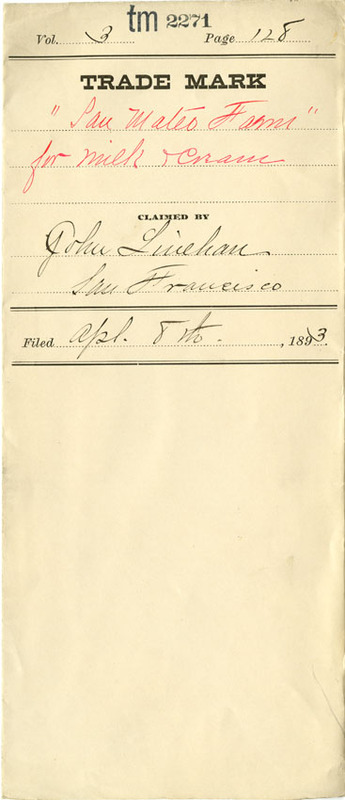 tm 2271
Vol. 3 Page 128
TRADE MARK
"San Mateo Farm"
for milk & Cream
CLAIMED BY
John Linehan
San Francisco
Filed Apl. 8th. , 1893.